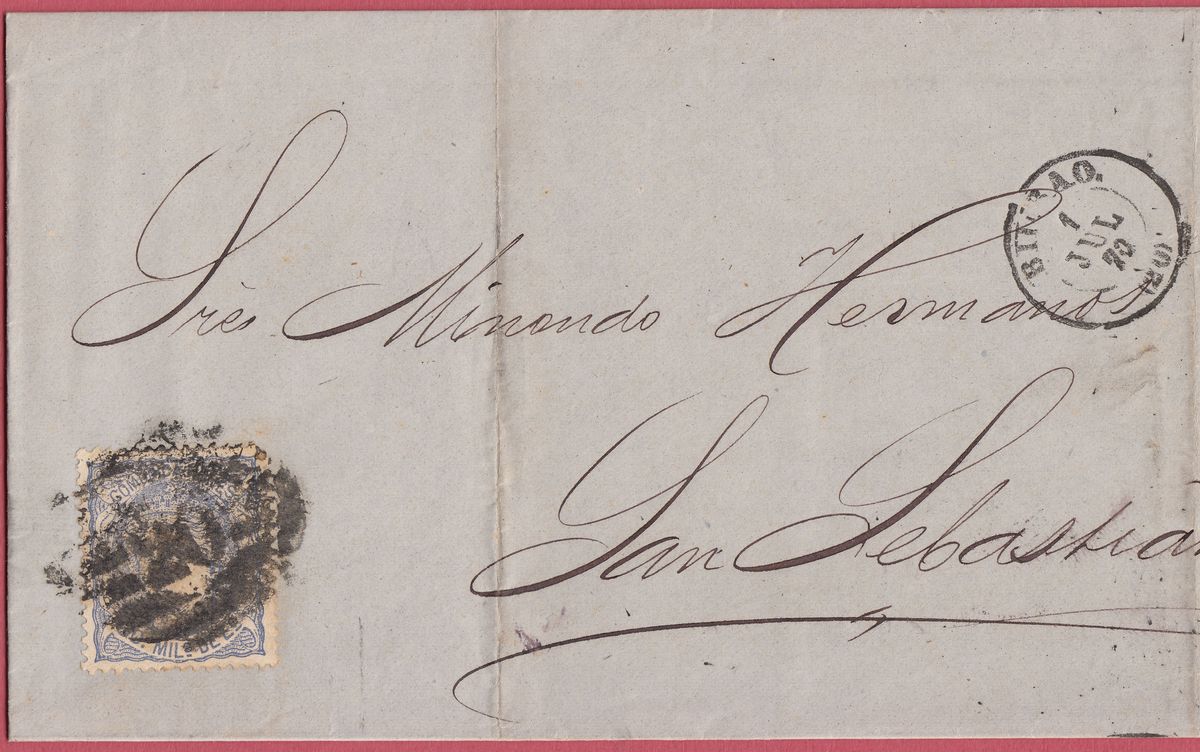 BILBAO.
1
JUL
70
Sres Minondo Hermanos
San Sebastia
MIL.